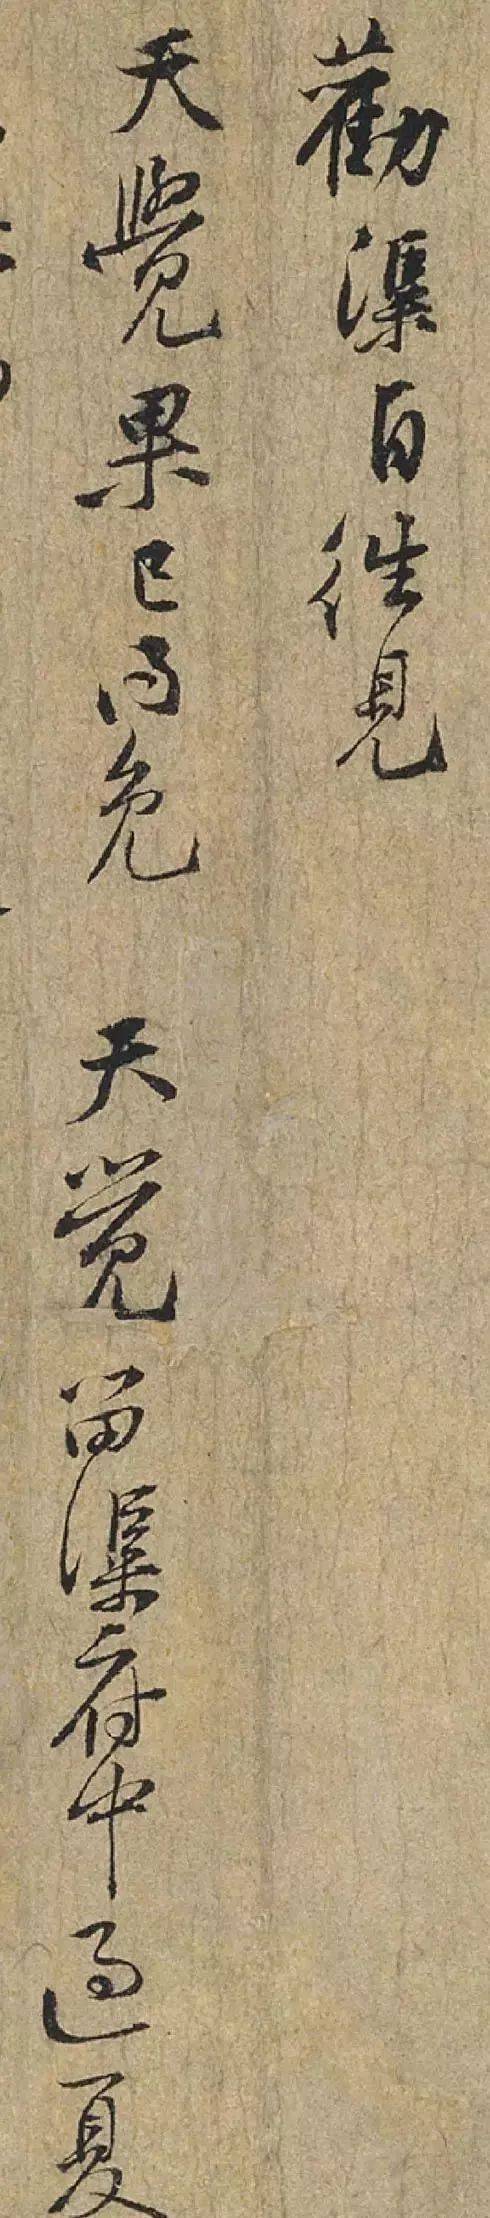 勸渠自往見
天覺果已得免 天覺留渠府中過夏